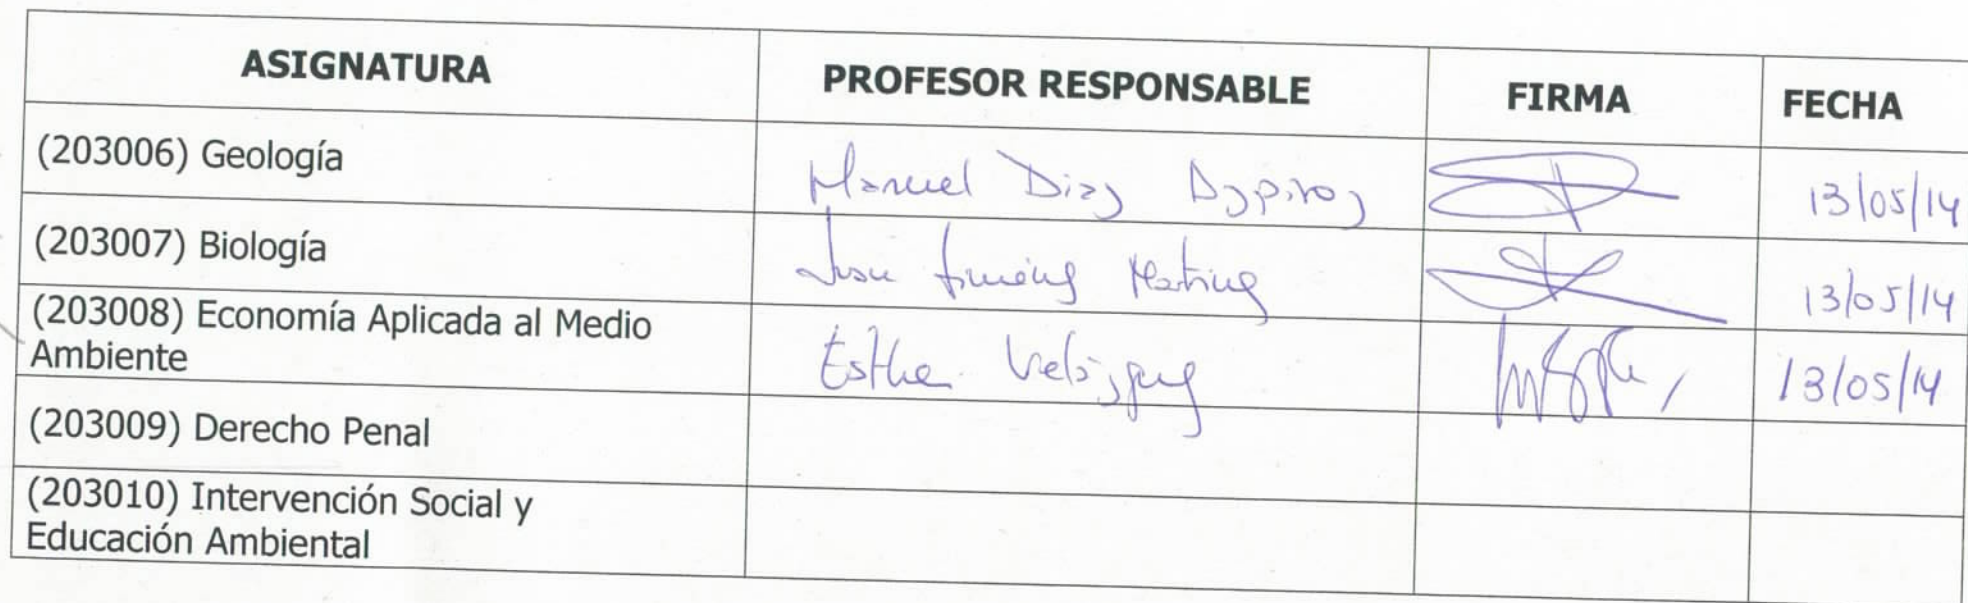 ASIGNATURA PROFESOR RESPONSABLE FIRMA FECHA
(203006) Geología Manuel Diaz 13/05/14
(203007) Biología Juan Martinez 13/05/14
(203008) Economía Aplicada al Medio
Ambiente Esther Velázquez 13/05/14
(203009) Derecho Penal
(203010) Intervención Social y
Educación Ambiental